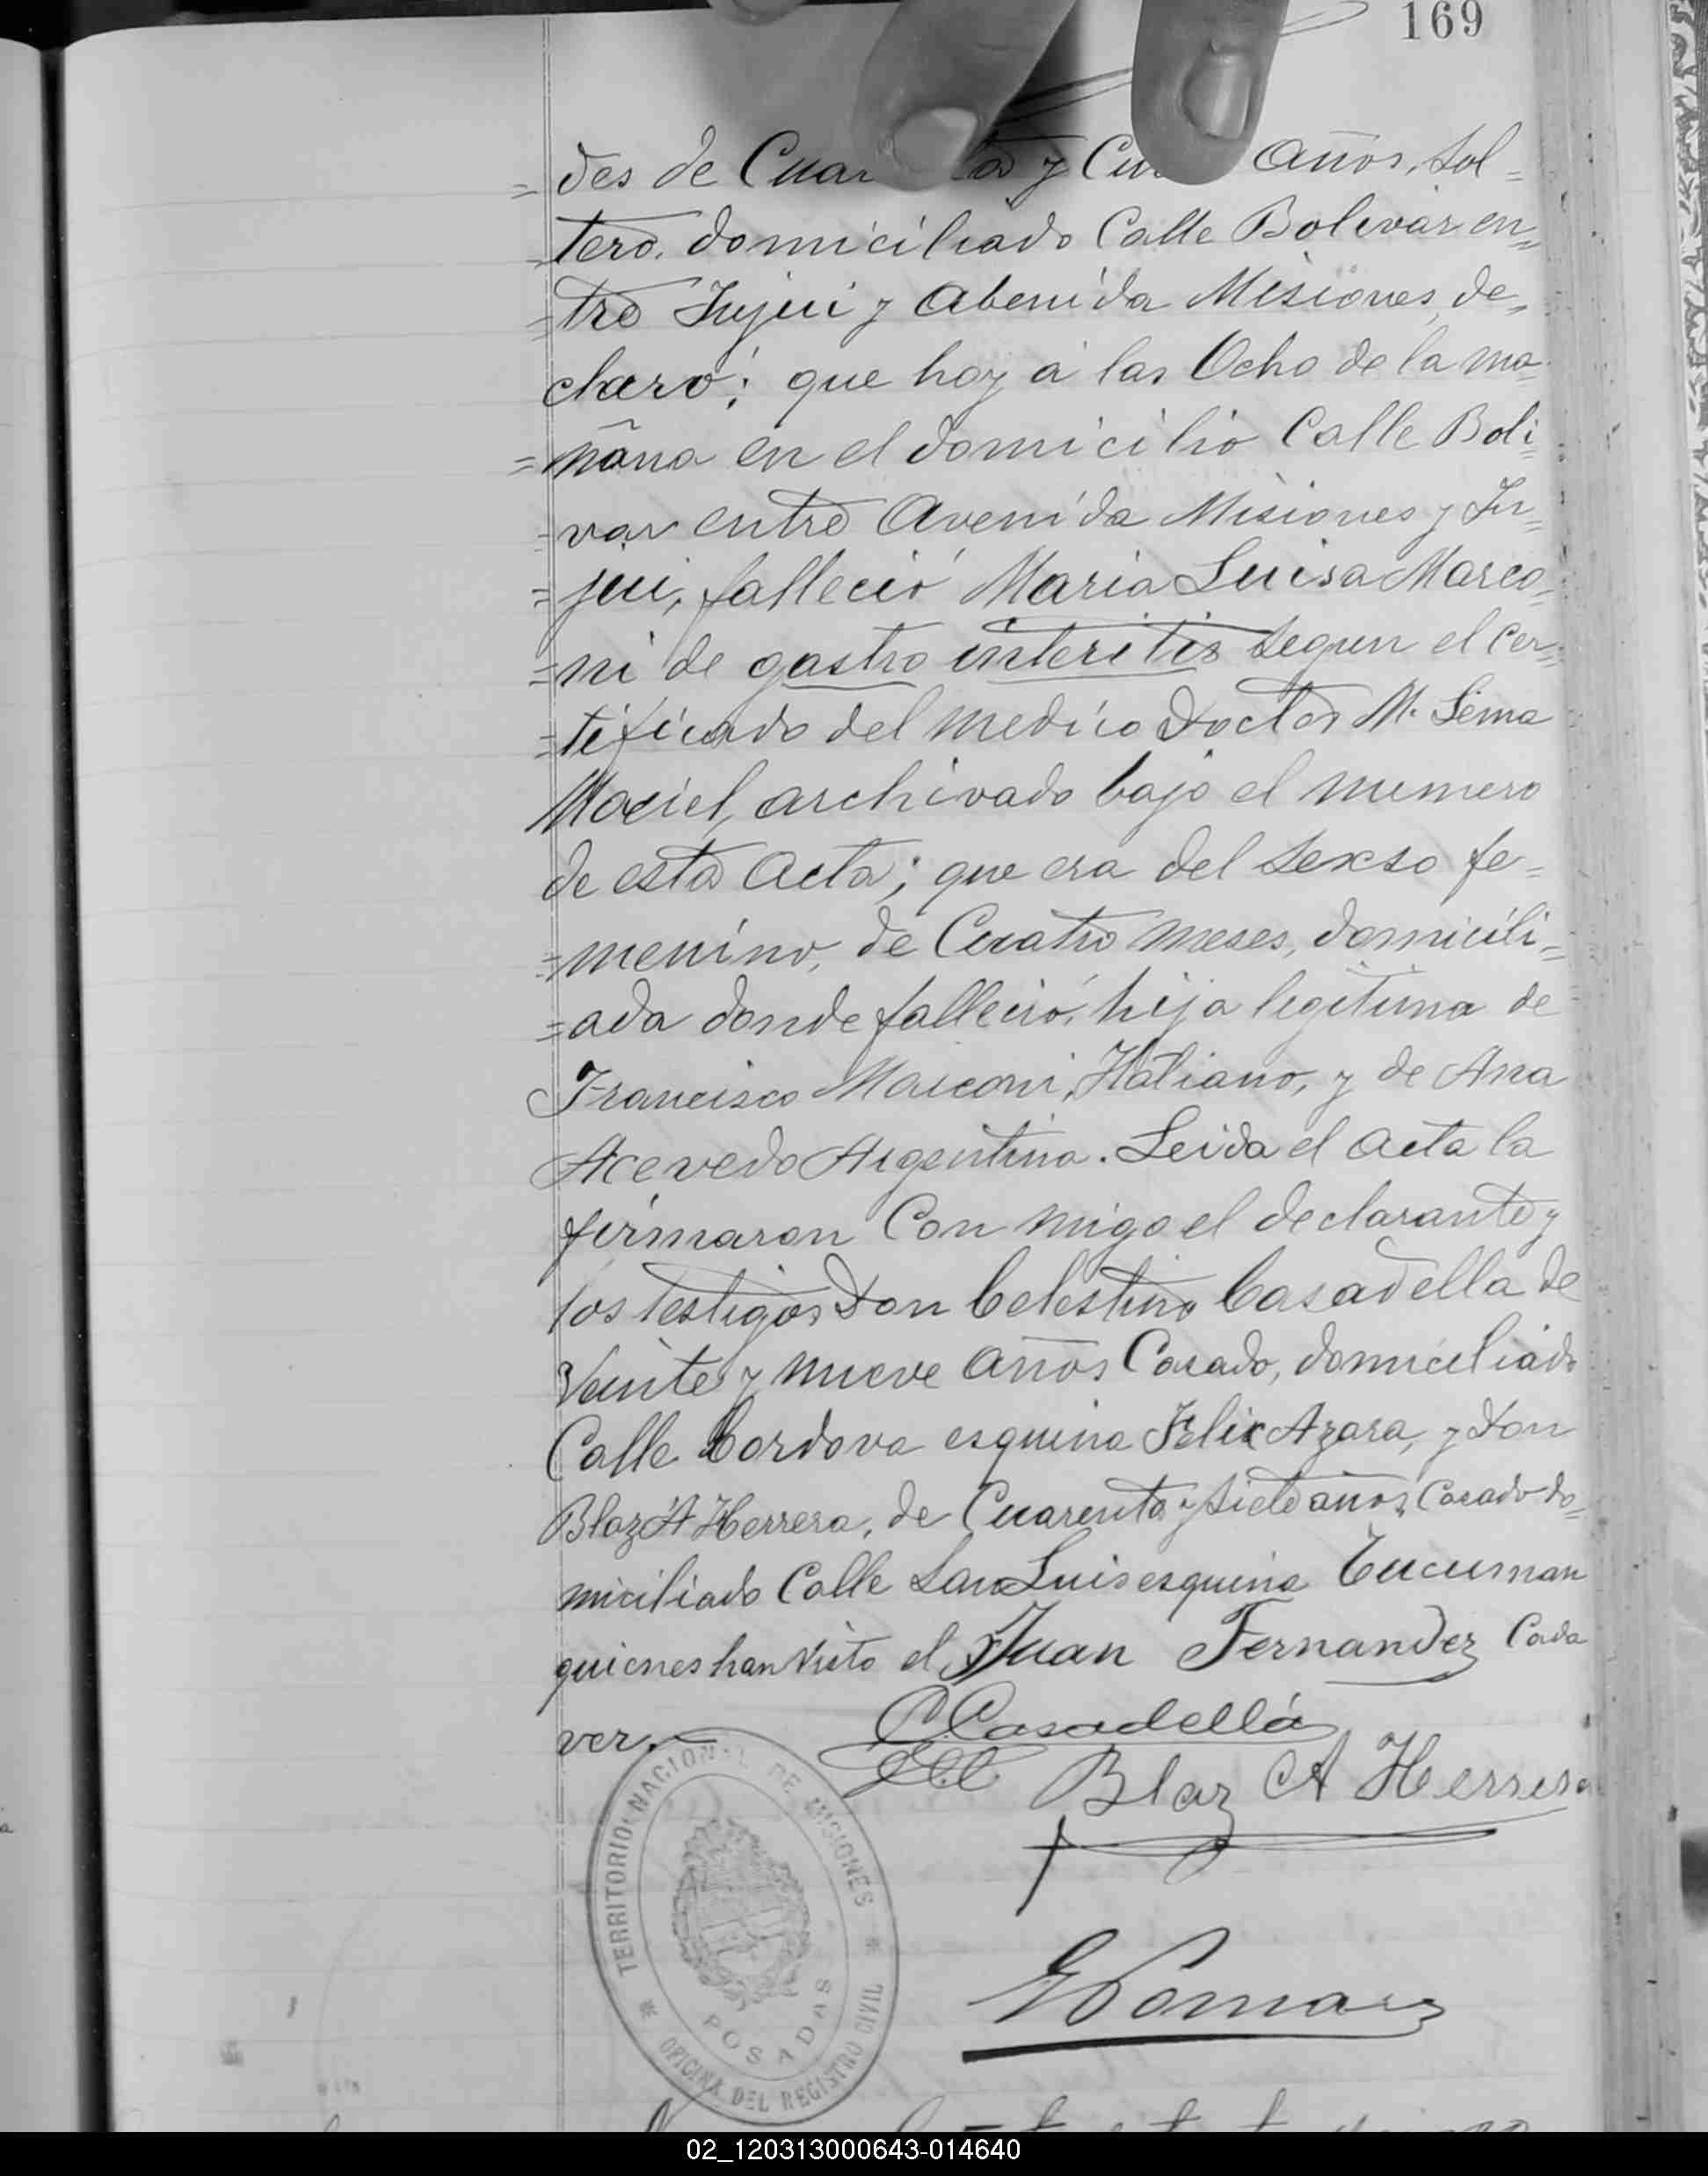 169
=des de años, sol=
=tero, domiciliado Calle Bolivar en=
=tre Jujui y Abenida Misiones, de=
claró; que hoy á las Ocho de la ma=
=ñana en el domicilio Calle Boli=
=var entre Avenida Misiones y Ju=
=jui, falleció Maria Luisa Marco=
=ni de gastro interitis segun el cer=
=tificado del medico Doctor M. Lema
Maciel, archivado bajo el numero
de esta Acta; que era del sexso fe=
=menino, de Cuatro meses, domicili=
=ada donde falleció, hija legitima de
Francisco Marconi, Itatiano, y de Ana
Acevedo Argentina. Leida el acta la
firmaron Con migo el declarante y
los testigos Don Celestino Casadella de
Veinte y nueve años Casado, domiciliado
Calle Cordova esquina Felix Azara, y Don
Blaz A Herrera, de Cuarenta y siete años, Casado do=
miciliado Calle San Luis esquina Tucuman
quienes han visto el Juan Fernandez Cada
ver.
C. Casadellá
Blaz A Herrera
TERRITORIO NACIONAL DE MISIONES
POSADAS
OFICINA DEL REGISTRO CIVIL
02_120313000643-014640